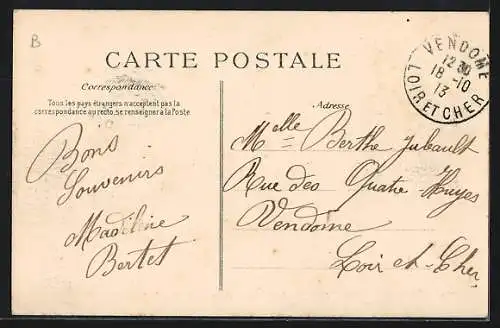 B
CARTE POSTALE
Correspondance
Tous les pays étrangers n'acceptent pas la
correspondance au recto, se renseigner à la Poste
Bons
Souvenirs
Madeleine
Bertet
Adresse
Melle Berthe Jubault
Rue des Quatre Huyes
Vendome
Loir et-Cher
VENDOME
12 30
18 -10
13
LOIR ET CHER